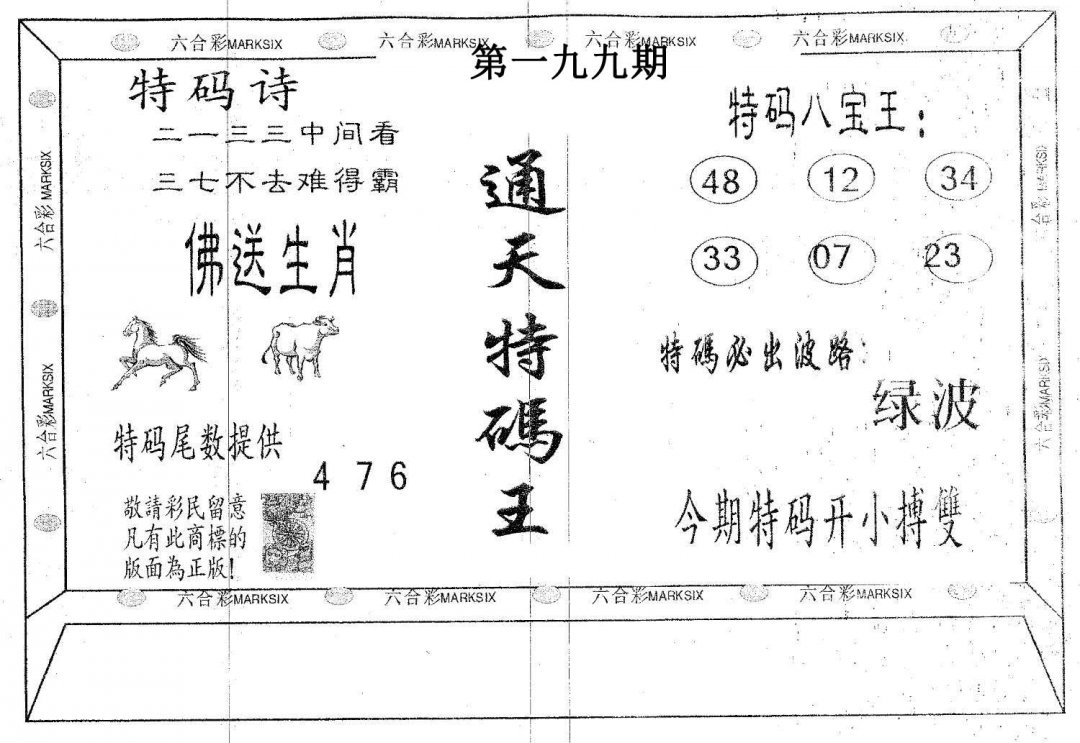 六合彩MARKSIX 六合彩MARKSIX 六合彩MARKSIX 六合彩MARKSIX
第一九九期
特码诗
二一三三中间看
三七不去难得霸
佛送生肖
特码尾数提供
4 7 6
敬請彩民留意
凡有此商標的
版面為正版!
通天特碼王
特码八宝王:
48 12 34
33 07 23
特碼必出波路:
绿波
今期特码开小搏雙
六合彩MARKSIX
六合彩MARKSIX
六合彩MARKSIX
六合彩MARKSIX
六合彩MARKSIX 六合彩MARKSIX 六合彩MARKSIX 六合彩MARKSIX